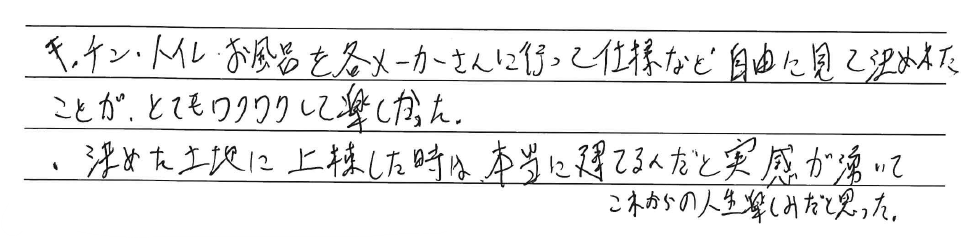 キッチン・トイレ・お風呂を各メーカーさんに行って仕様など自由に見て決めれた
ことが、とてもワクワクして楽しかった。
・決めた土地に上棟した時は、本当に建てるんだと実感が湧いて
これからの人生楽しみだと思った。